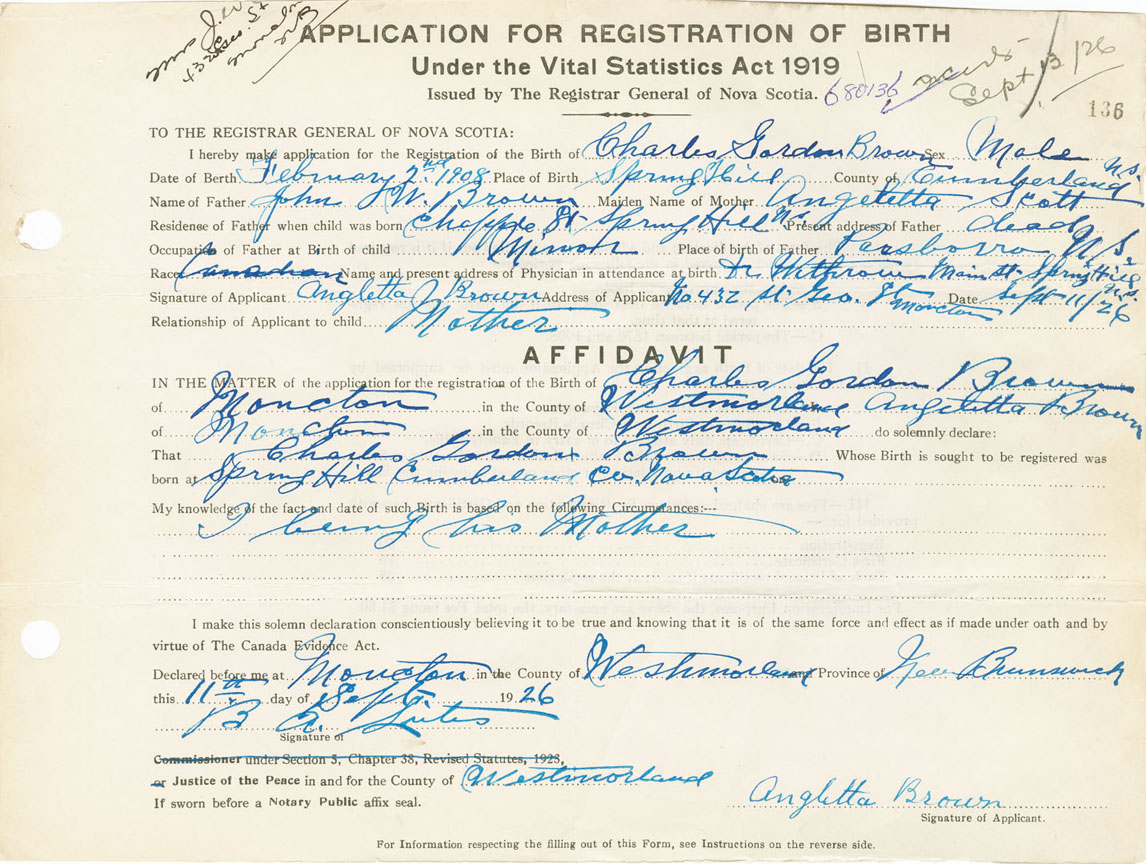 Mrs J. W.
432 Geo. St
Moncton
N B
APPLICATION FOR REGISTRATION OF BIRTH
Under the Vital Statistics Act 1919
Issued by The Registrar General of Nova Scotia.
680136
Sept 13/26
136
TO THE REGISTRAR GENERAL OF NOVA SCOTIA:
I hereby make application for the Registration of the Birth of Charles Gordon Brown Sex Male
Date of Berth February 2nd 1908 Place of Birth Spring Hill County of Cumberland N.S.
Name of Father John W. Brown Maiden Name of Mother Angeletta Scott
Residense of Father when child was born Chapple St Spring Hill N.S. Present address of Father dead
Occupation of Father at Birth of child Minor Place of birth of Father Parsborro N. S.
Race Canadian Name and present address of Physician in attendance at birth Dr Withrow Main St. Spring Hill N.S.
Signature of Applicant Angletta J Brown Address of Applicant No. 432 St. Geo. St Moncton Date Sept 11/26
Relationship of Applicant to child Mother
AFFIDAVIT
IN THE MATTER of the application for the registration of the Birth of Charles Gordon Brown
of Moncton in the County of Westmorland Angeletta Brown
of Moncton in the County of Westmorland do solemnly declare:
That Charles Gordon Brown Whose Birth is sought to be registered was
born at Spring Hill Cumberland Co. Nova Scotia on
My knowledge of the fact and date of such Birth is based on the following Circumstances:---
I being his Mother
I make this solemn declaration conscientiously believing it to be true and knowing that it is of the same force and effect as if made under oath and by
virtue of The Canada Evidence Act.
Declared before me at Moncton in the County of Westmorland and Province of New Brunswick
this 11th day of Sept. 1926
B A. Lutes
Signature of
Commissioner under Section 5, Chapter 38, Revised Statutes, 1923,
or Justice of the Peace in and for the County of Westmorland
If sworn before a Notary Public affix seal.
Angletta Brown
Signature of Applicant.
For Information respecting the filling out of this Form, see Instructions on the reverse side.